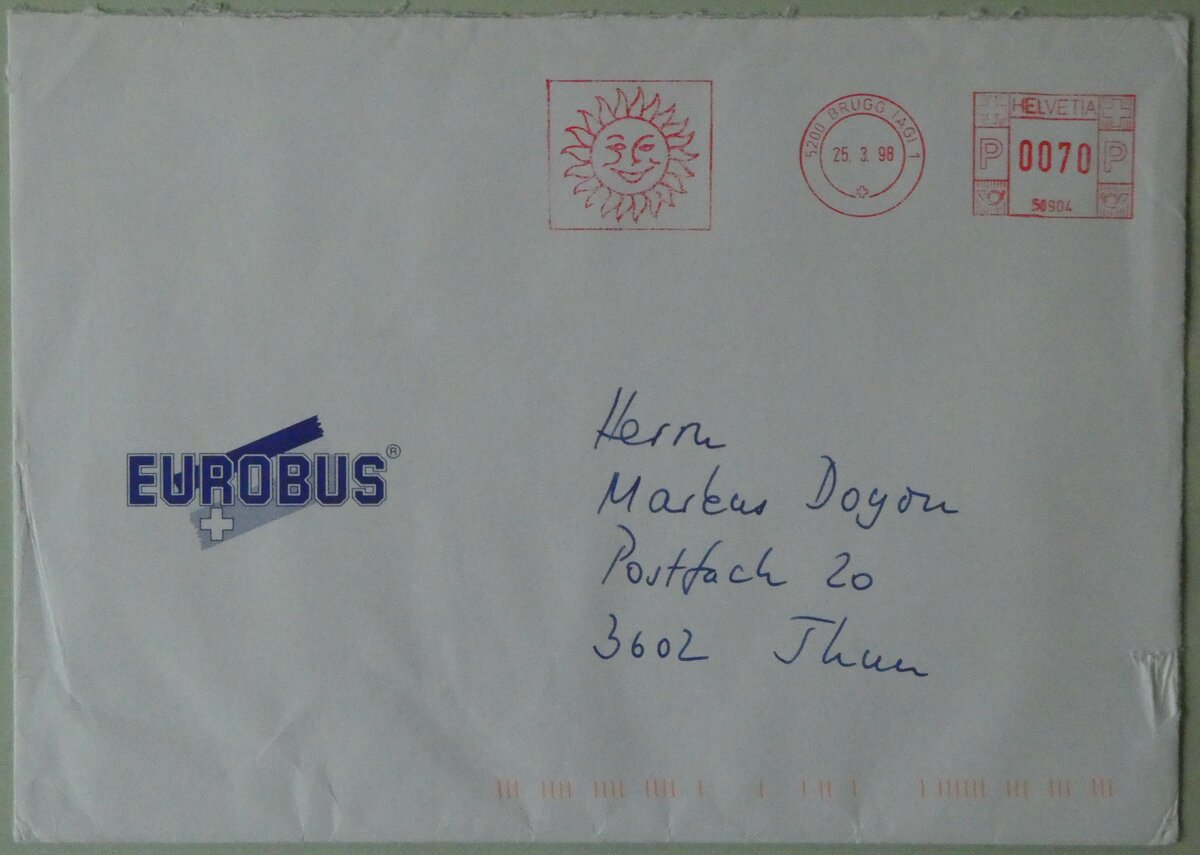 5200 BRUGG (AG) 1
25. 3. 98
HELVETIA
P 0070 P
50904
EUROBUS®
Herrn
Markus Doyon
Postfach 20
3602 Thun